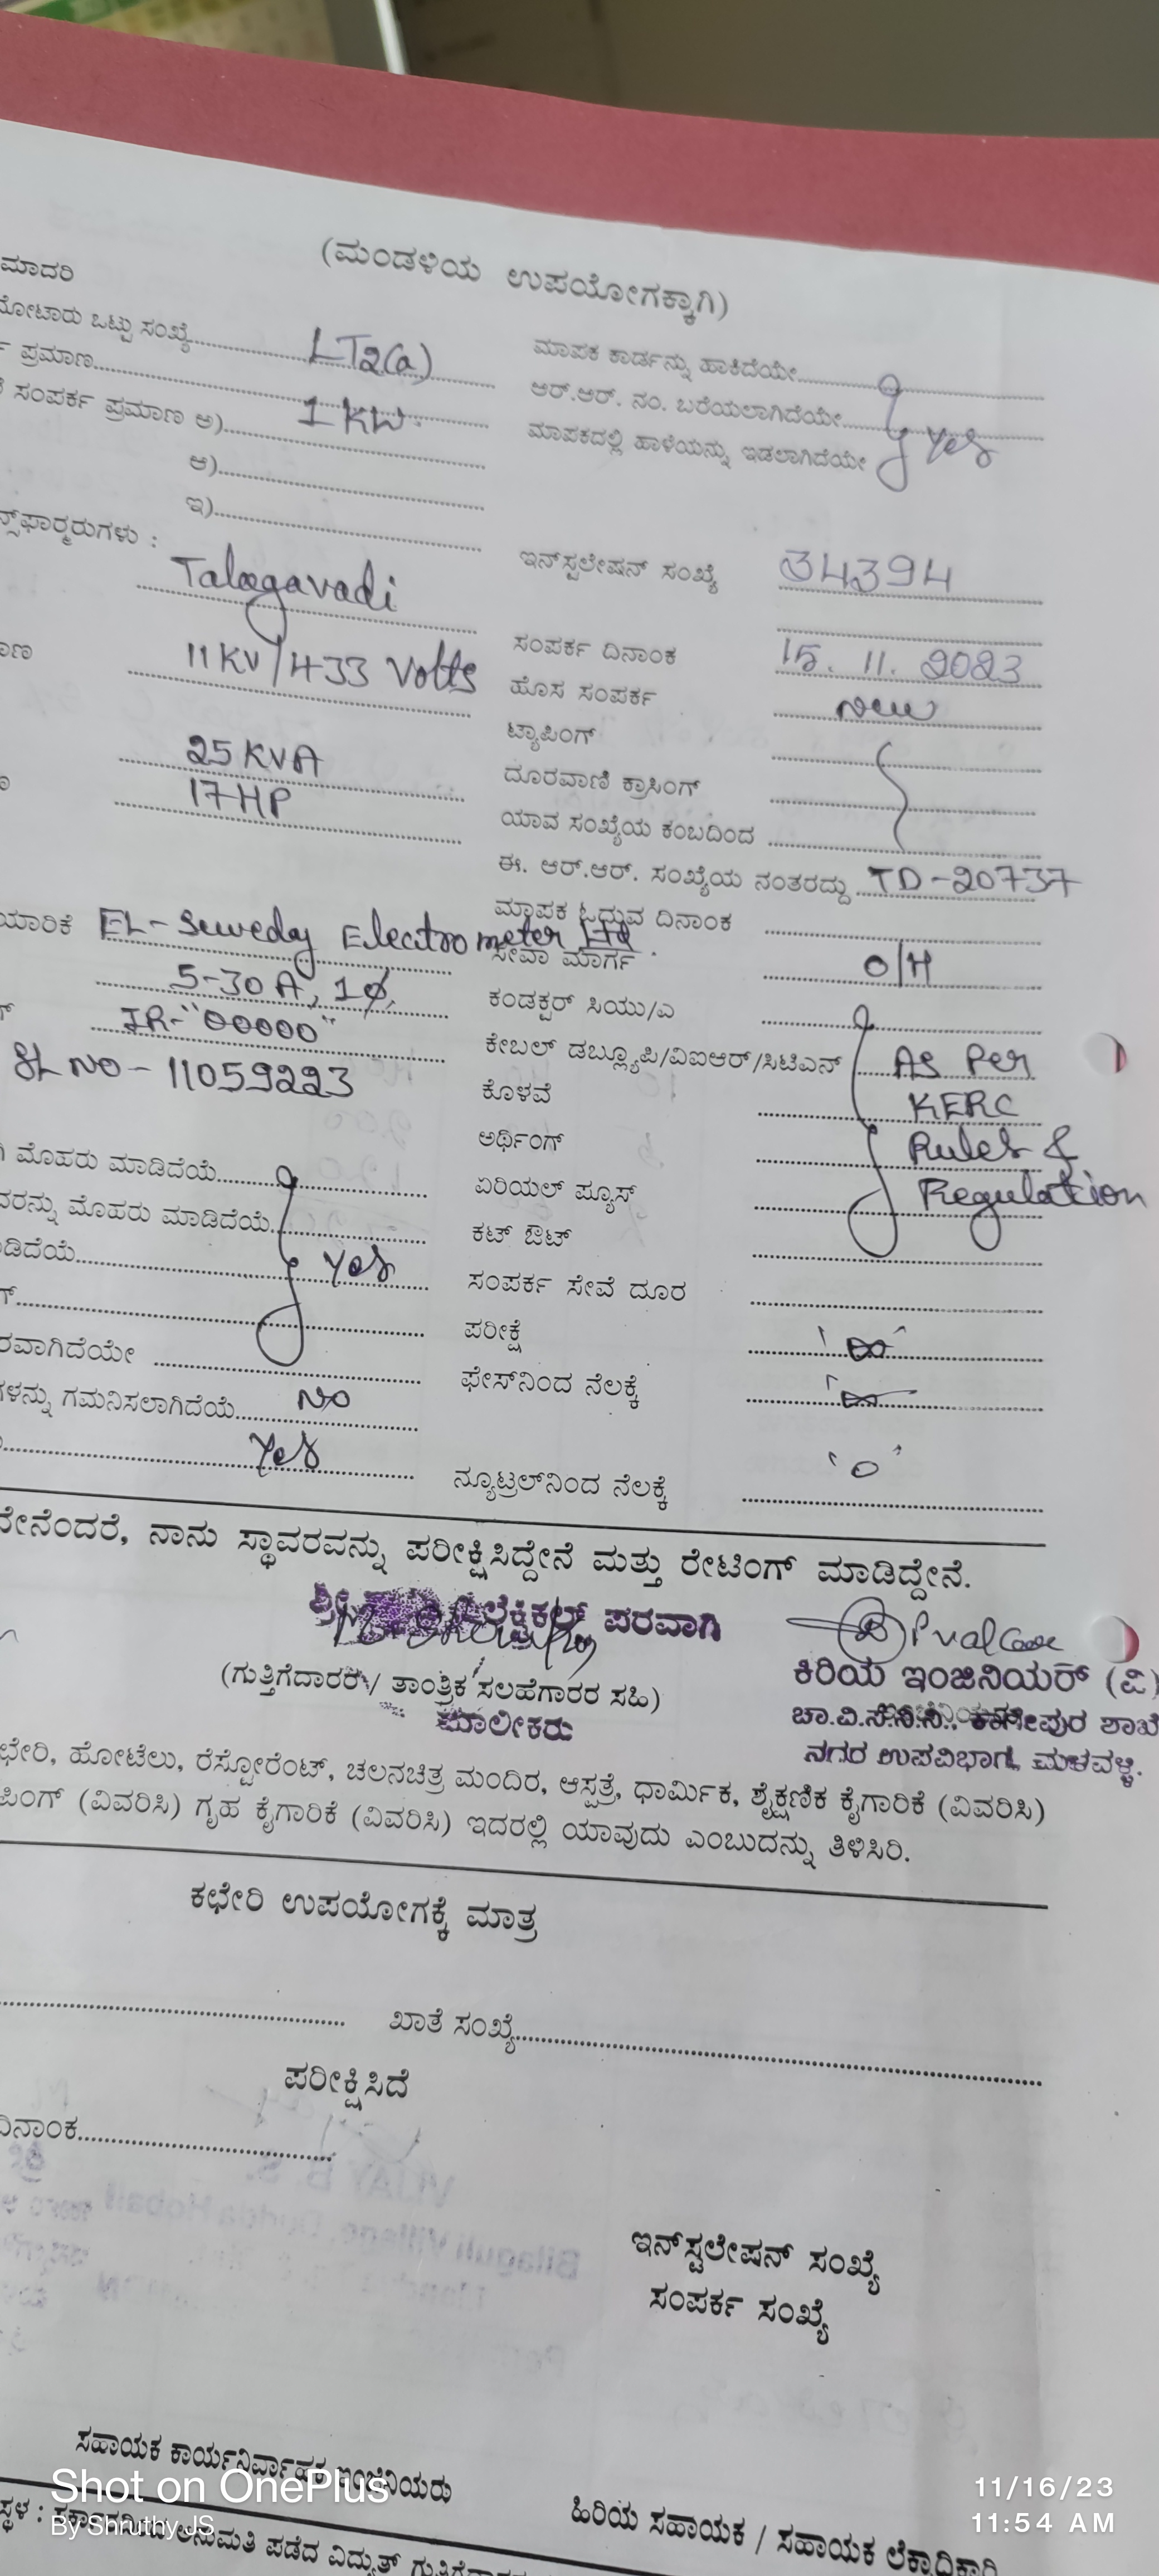 (ಮಂಡಳಿಯ ಉಪಯೋಗಕ್ಕಾಗಿ)
ಮಾದರಿ
ಮೋಟಾರು ಒಟ್ಟು ಸಂಖ್ಯೆ LT2(a)
ಪ್ರಮಾಣ 1 KW
ಸಂಪರ್ಕ ಪ್ರಮಾಣ ಅ)
ಆ)
ಇ)
ನ್ಸ್‌ಫಾರ್ಮರುಗಳು :
Talagavadi
11 KV/433 Volts
25 KVA
17 HP
ಯಾರಿಕೆ EL-Sewedy Electrometer Ltd.
5-30 A, 1φ,
IR-"00000"
SL NO - 11059223
ಮೊಹರು ಮಾಡಿದೆಯೆ
ವರನ್ನು ಮೊಹರು ಮಾಡಿದೆಯೆ
ಡಿದೆಯೆ Yes
ರವಾಗಿದೆಯೇ
ಗಳನ್ನು ಗಮನಿಸಲಾಗಿದೆಯೆ No
Yes
ಮಾಪಕ ಕಾರ್ಡನ್ನು ಹಾಕಿದೆಯೇ
ಆರ್.ಆರ್. ನಂ. ಬರೆಯಲಾಗಿದೆಯೇ
ಮಾಪಕದಲ್ಲಿ ಹಾಳೆಯನ್ನು ಇಡಲಾಗಿದೆಯೇ Yes
ಇನ್‌ಸ್ಟಲೇಷನ್ ಸಂಖ್ಯೆ 34394
ಸಂಪರ್ಕ ದಿನಾಂಕ 15. 11. 2023
ಹೊಸ ಸಂಪರ್ಕ New
ಟ್ಯಾಪಿಂಗ್
ದೂರವಾಣಿ ಕ್ರಾಸಿಂಗ್
ಯಾವ ಸಂಖ್ಯೆಯ ಕಂಬದಿಂದ
ಈ. ಆರ್.ಆರ್. ಸಂಖ್ಯೆಯ ನಂತರದ್ದು TD-20737
ಮಾಪಕ ಓದುವ ದಿನಾಂಕ
ಸೇವಾ ಮಾರ್ಗ O/H
ಕಂಡಕ್ಟರ್ ಸಿಯು/ಎ
ಕೇಬಲ್ ಡಬ್ಲ್ಯೂಪಿ/ವಿಐಆರ್/ಸಿಟಿಎನ್ As Per
ಕೊಳವೆ KERC
ಅರ್ಥಿಂಗ್ Rules &
ಏರಿಯಲ್ ಫ್ಯೂಸ್ Regulation
ಕಟ್ ಔಟ್
ಸಂಪರ್ಕ ಸೇವೆ ದೂರ
ಪರೀಕ್ಷೆ '∞'
ಫೇಸ್‌ನಿಂದ ನೆಲಕ್ಕೆ
ನ್ಯೂಟ್ರಲ್‌ನಿಂದ ನೆಲಕ್ಕೆ '0'
ನೇನೆಂದರೆ, ನಾನು ಸ್ಥಾವರವನ್ನು ಪರೀಕ್ಷಿಸಿದ್ದೇನೆ ಮತ್ತು ರೇಟಿಂಗ್ ಮಾಡಿದ್ದೇನೆ.
ಶ್ರೀ ಪರವಾಗಿ
(ಗುತ್ತಿಗೆದಾರರ / ತಾಂತ್ರಿಕ ಸಲಹೆಗಾರರ ಸಹಿ)
ಮಾಲೀಕರು
ಕಿರಿಯ ಇಂಜಿನಿಯರ್ (ವಿ)
ಚಾ.ವಿ.ಸ.ನಿ.ನಿ., ಶಾಖೆ
ನಗರ ಉಪವಿಭಾಗ, ಮಳವಳ್ಳಿ.
ಛೇರಿ, ಹೋಟೆಲು, ರೆಸ್ಟೋರೆಂಟ್, ಚಲನಚಿತ್ರ ಮಂದಿರ, ಆಸ್ಪತ್ರೆ, ಧಾರ್ಮಿಕ, ಶೈಕ್ಷಣಿಕ ಕೈಗಾರಿಕೆ (ವಿವರಿಸಿ)
ಪಿಂಗ್ (ವಿವರಿಸಿ) ಗೃಹ ಕೈಗಾರಿಕೆ (ವಿವರಿಸಿ) ಇದರಲ್ಲಿ ಯಾವುದು ಎಂಬುದನ್ನು ತಿಳಿಸಿರಿ.
ಕಛೇರಿ ಉಪಯೋಗಕ್ಕೆ ಮಾತ್ರ
ಖಾತೆ ಸಂಖ್ಯೆ
ಪರೀಕ್ಷಿಸಿದೆ
ದಿನಾಂಕ
ಇನ್‌ಸ್ಟಲೇಷನ್ ಸಂಖ್ಯೆ
ಸಂಪರ್ಕ ಸಂಖ್ಯೆ
ಸಹಾಯಕ ಕಾರ್ಯನಿರ್ವಾಹಕ ಇಂಜಿನಿಯರು
ಹಿರಿಯ ಸಹಾಯಕ / ಸಹಾಯಕ ಲೆಕ್ಕಾಧಿಕಾರಿ
ಸ್ಥಳ : ಅನುಮತಿ ಪಡೆದ ವಿದ್ಯುತ್
Shot on OnePlus
By Shruthy JS
11/16/23
11:54 AM